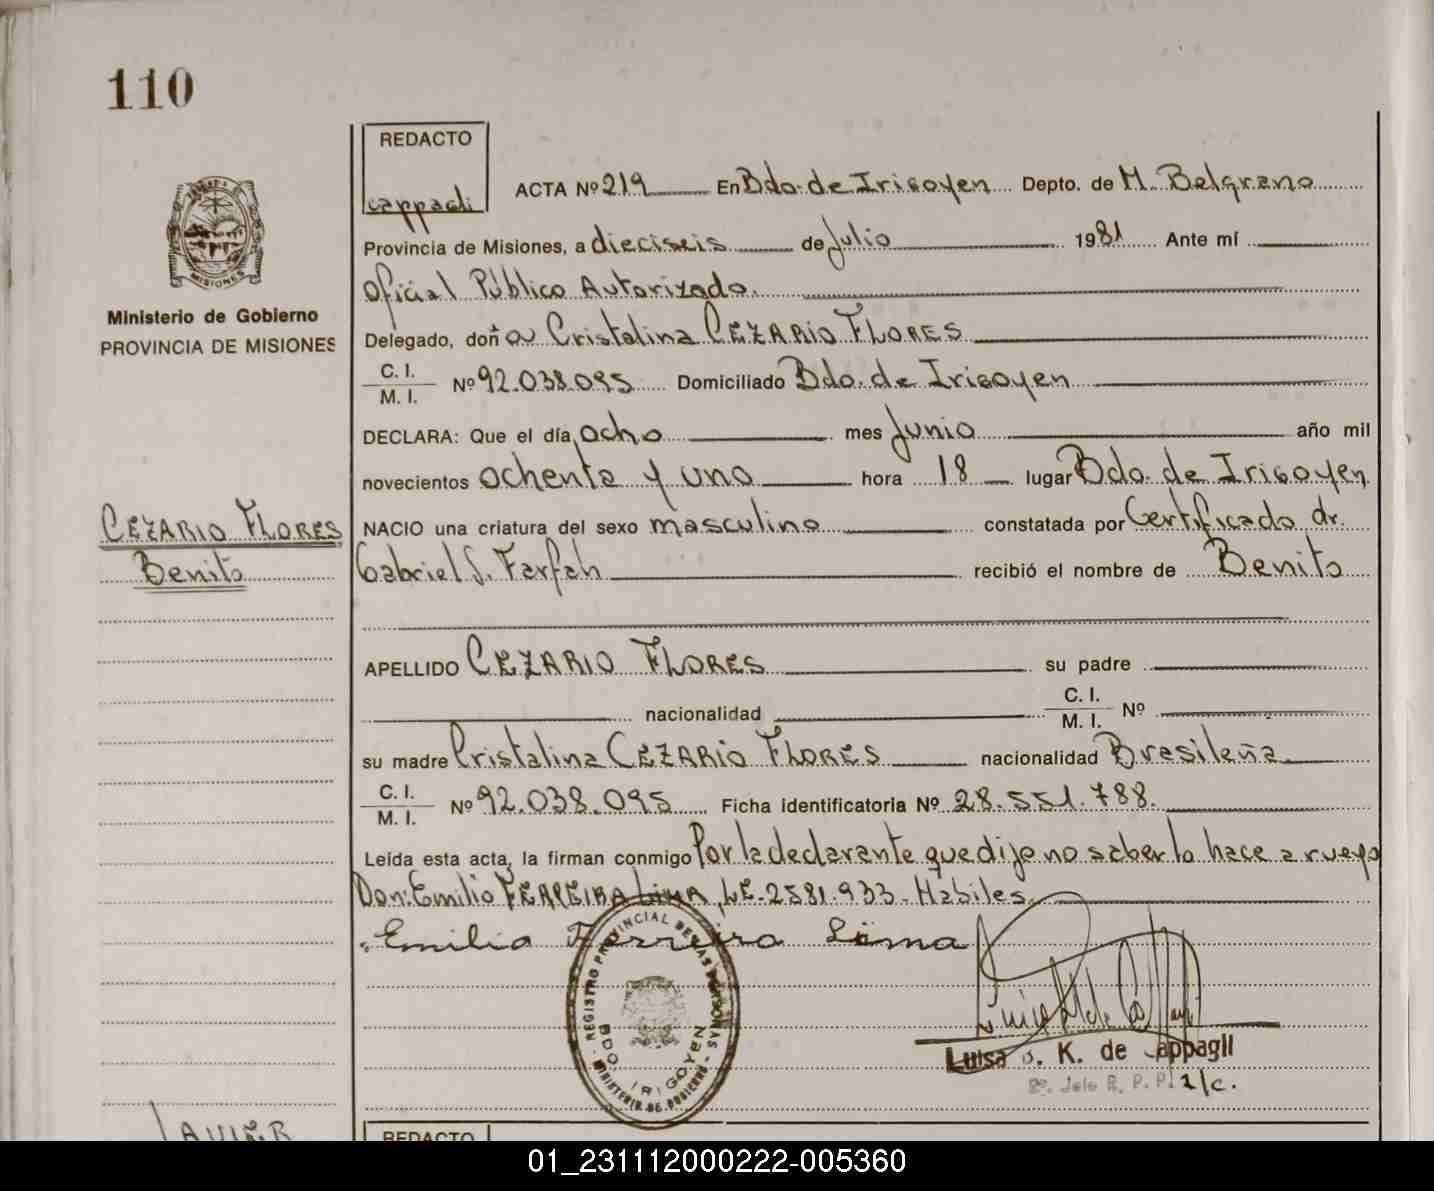 110
REDACTO
cappagli
ACTA Nº 219 En Bdo. de Irigoyen Depto. de M. Belgrano
Provincia de Misiones, a dieciseis de Julio 1981 Ante mí
Oficial Público Autorizado.
Delegado, doña Cristalina CEZARIO FLORES
C. I.
M. I.
Nº 92.038.095 Domiciliado Bdo. de Irigoyen
DECLARA: Que el día ocho mes Junio año mil
novecientos ochenta y uno hora 18 lugar Bdo. de Irigoyen
NACIO una criatura del sexo masculino constatada por Certificado dr.
Gabriel S. Farfah recibió el nombre de Benito
APELLIDO CEZARIO FLORES su padre
nacionalidad C. I.
M. I. Nº
su madre Cristalina CEZARIO FLORES nacionalidad Brasileña
C. I.
M. I.
Nº 92.038.095 Ficha identificatoria Nº 28.551.788.
Leída esta acta, la firman conmigo Por la declarante que dijo no saber lo hace a ruego
Don: Emilio FERREIRA LIMA, LE-2581.933. Habiles
Emilio Ferreira Lima
MISIONES
Ministerio de Gobierno
PROVINCIA DE MISIONES
CEZARIO FLORES
Benito
REGISTRO PROVINCIAL DE LAS PERSONAS
MINISTERIO DE GOBIERNO
BDO. IRIGOYEN
Luisa K. de Cappagli
2º. Jefe R. P. P. 1/c.
JAVIER
REDACTO
01_231112000222-005360